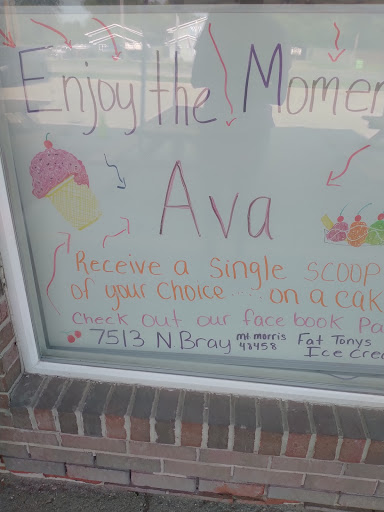 Enjoy the Momen
Ava
Receive a single scoop
of your choice.... on a cak
Check out our face book Pa
7513 N Bray mt morris 48458 Fat Tonys
Ice Crea